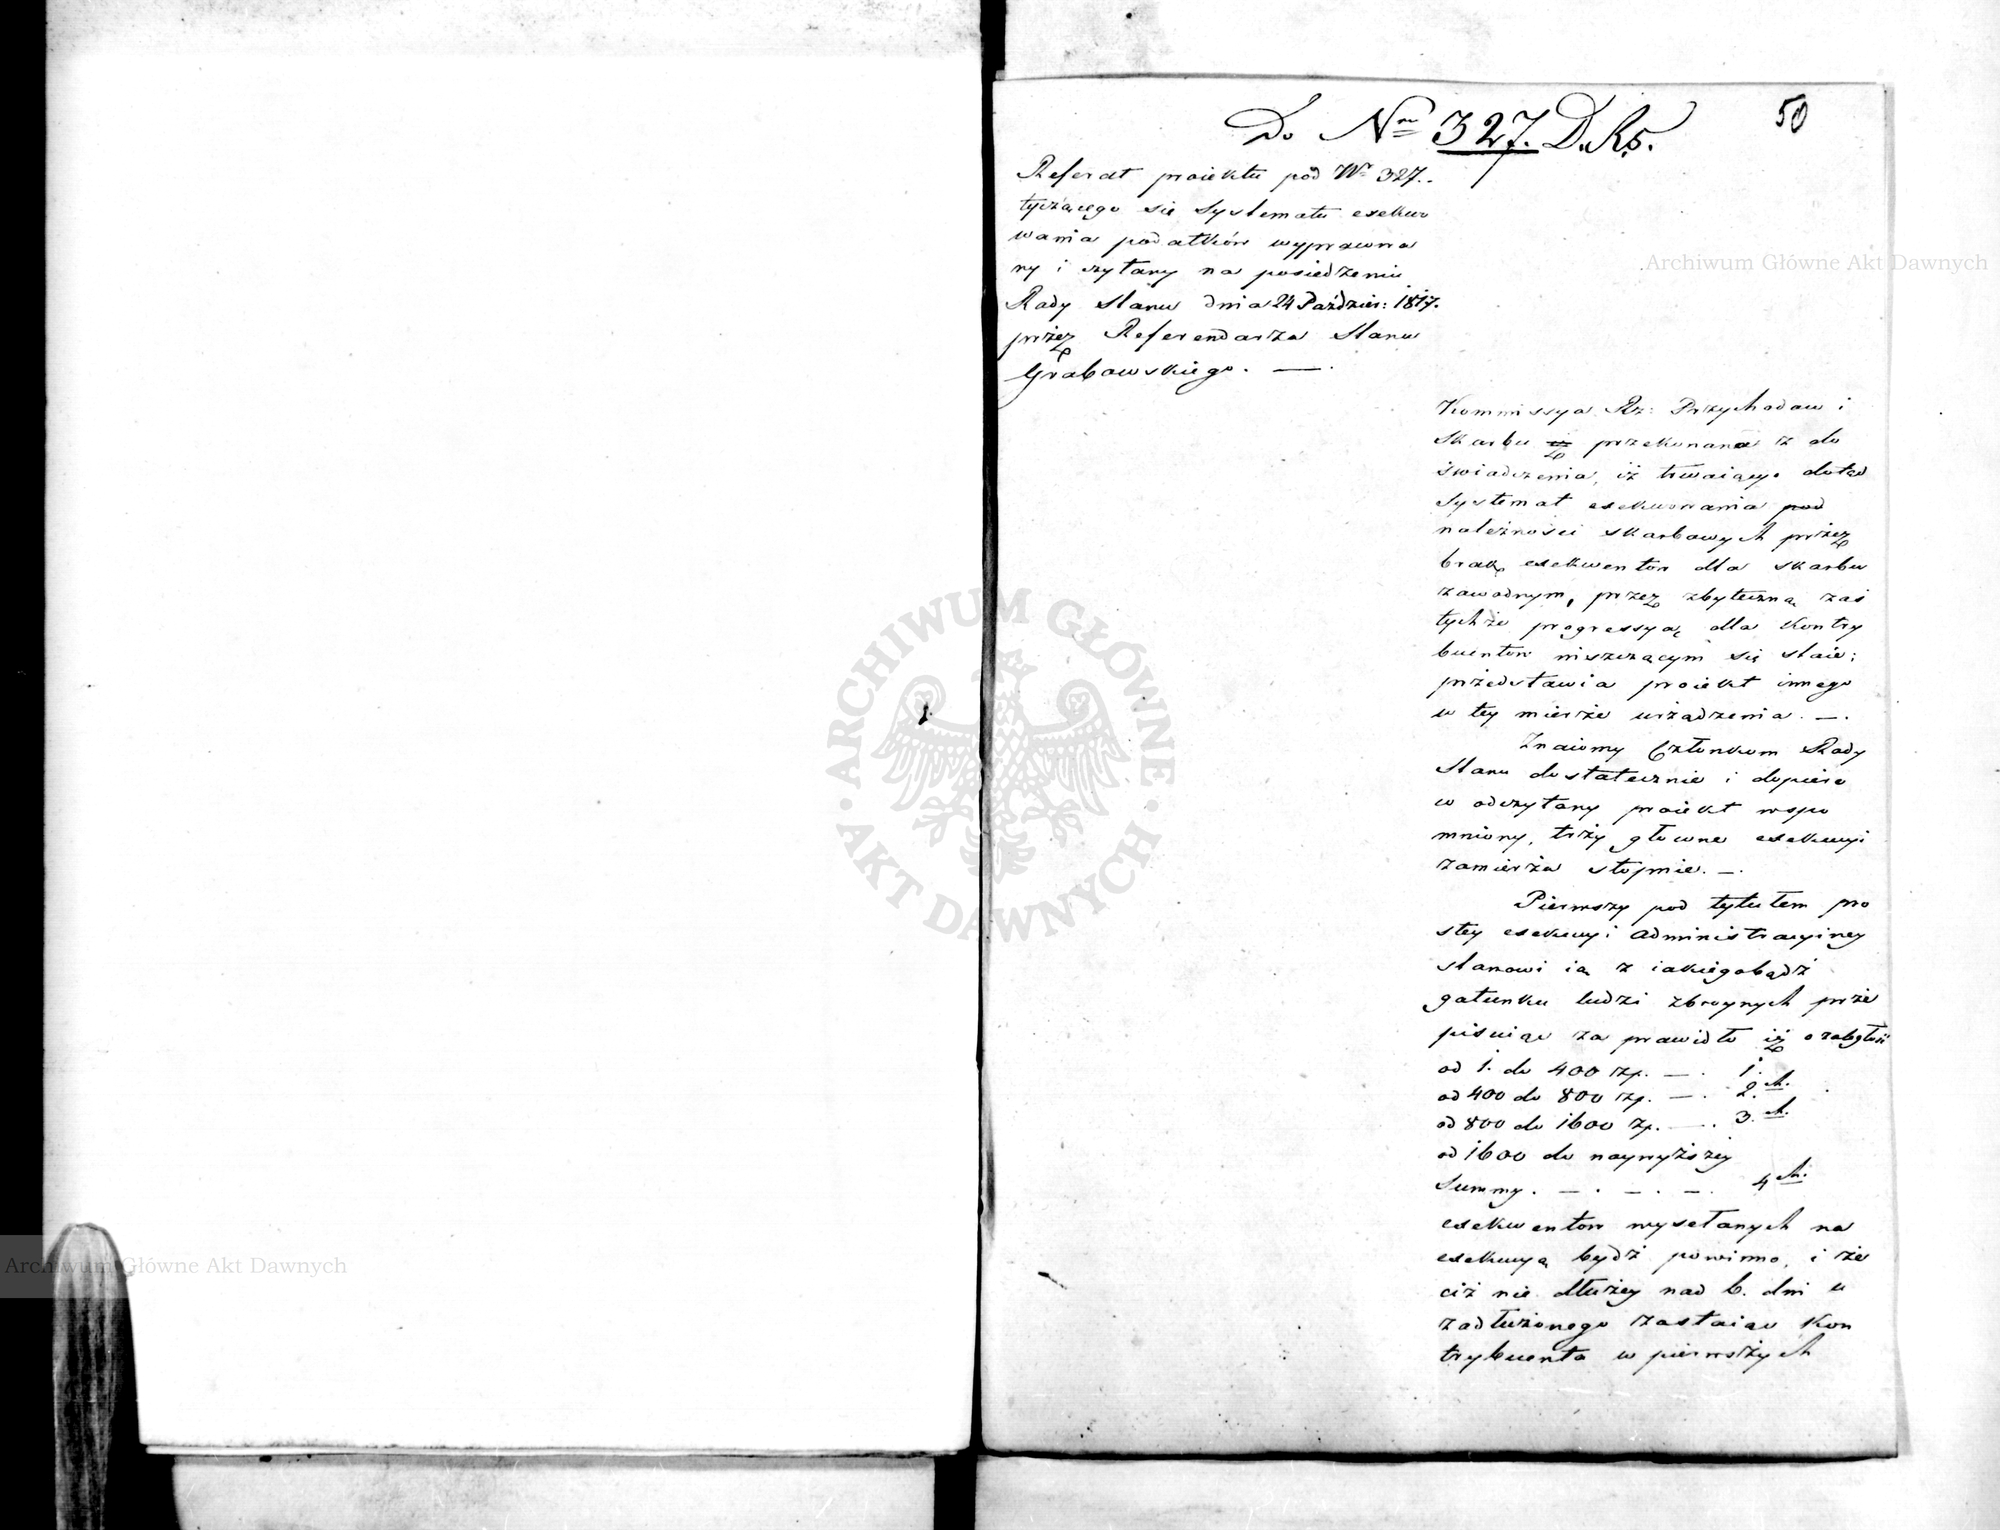 50
Do Nru 327. D.R.S.
Referat proiektu pod Nr 327.
tyczącego się Systematu exekwo
wania podatków wypracowa
ny i czytany na posiedzeniu
Rady Stanu dnia 24 Paździer: 1817.
przez Referendarza Stanu
Grabowskiego. —
Kommissya Rz: Przychodow i
Skarbu iż przekonana z do
świadczenia, iż trwaiący dotąd
Systemat exekwowania pod
należności skarbowych przez
brak exekwentow dla skarbu
zawodnym, przez zbyteczną zaś
tychże progressyą dla Kontry
buentow niszczącym się staie;
przedstawia proiekt innego
w tey mierze urządzenia. —.
Znaiomy Członkom Rady
Stanu dostatecznie i dopiero
w odczytany proiekt wspo
mniony, trzy główne exekucyi
zamierza stopnie. —.
Pierwszy pod tytułem pro
stey exekucyi administracyiney
stanowi ią z iakiegobądź
gatunku ludzi zbroynych prze
pisuiąc za prawidło iż o zaległość
od 1. do 400 Zp. —. 1.
od 400 do 800 Zp. —. 2.ch.
od 800 do 1600 Zp. —. 3.ch.
od 1600 do naywyższey
Summy. —. —. —. 4ch.
exekwentow wysełanych na
exekucyą bydź powinno, i że
ciż nie dłużey nad 6. dni u
zadłużonego zostaiąc Kon
trybuenta w pierwszych
ARCHIWUM GŁÓWNE
AKT DAWNYCH
Archiwum Główne Akt Dawnych
Archiwum Główne Akt Dawnych